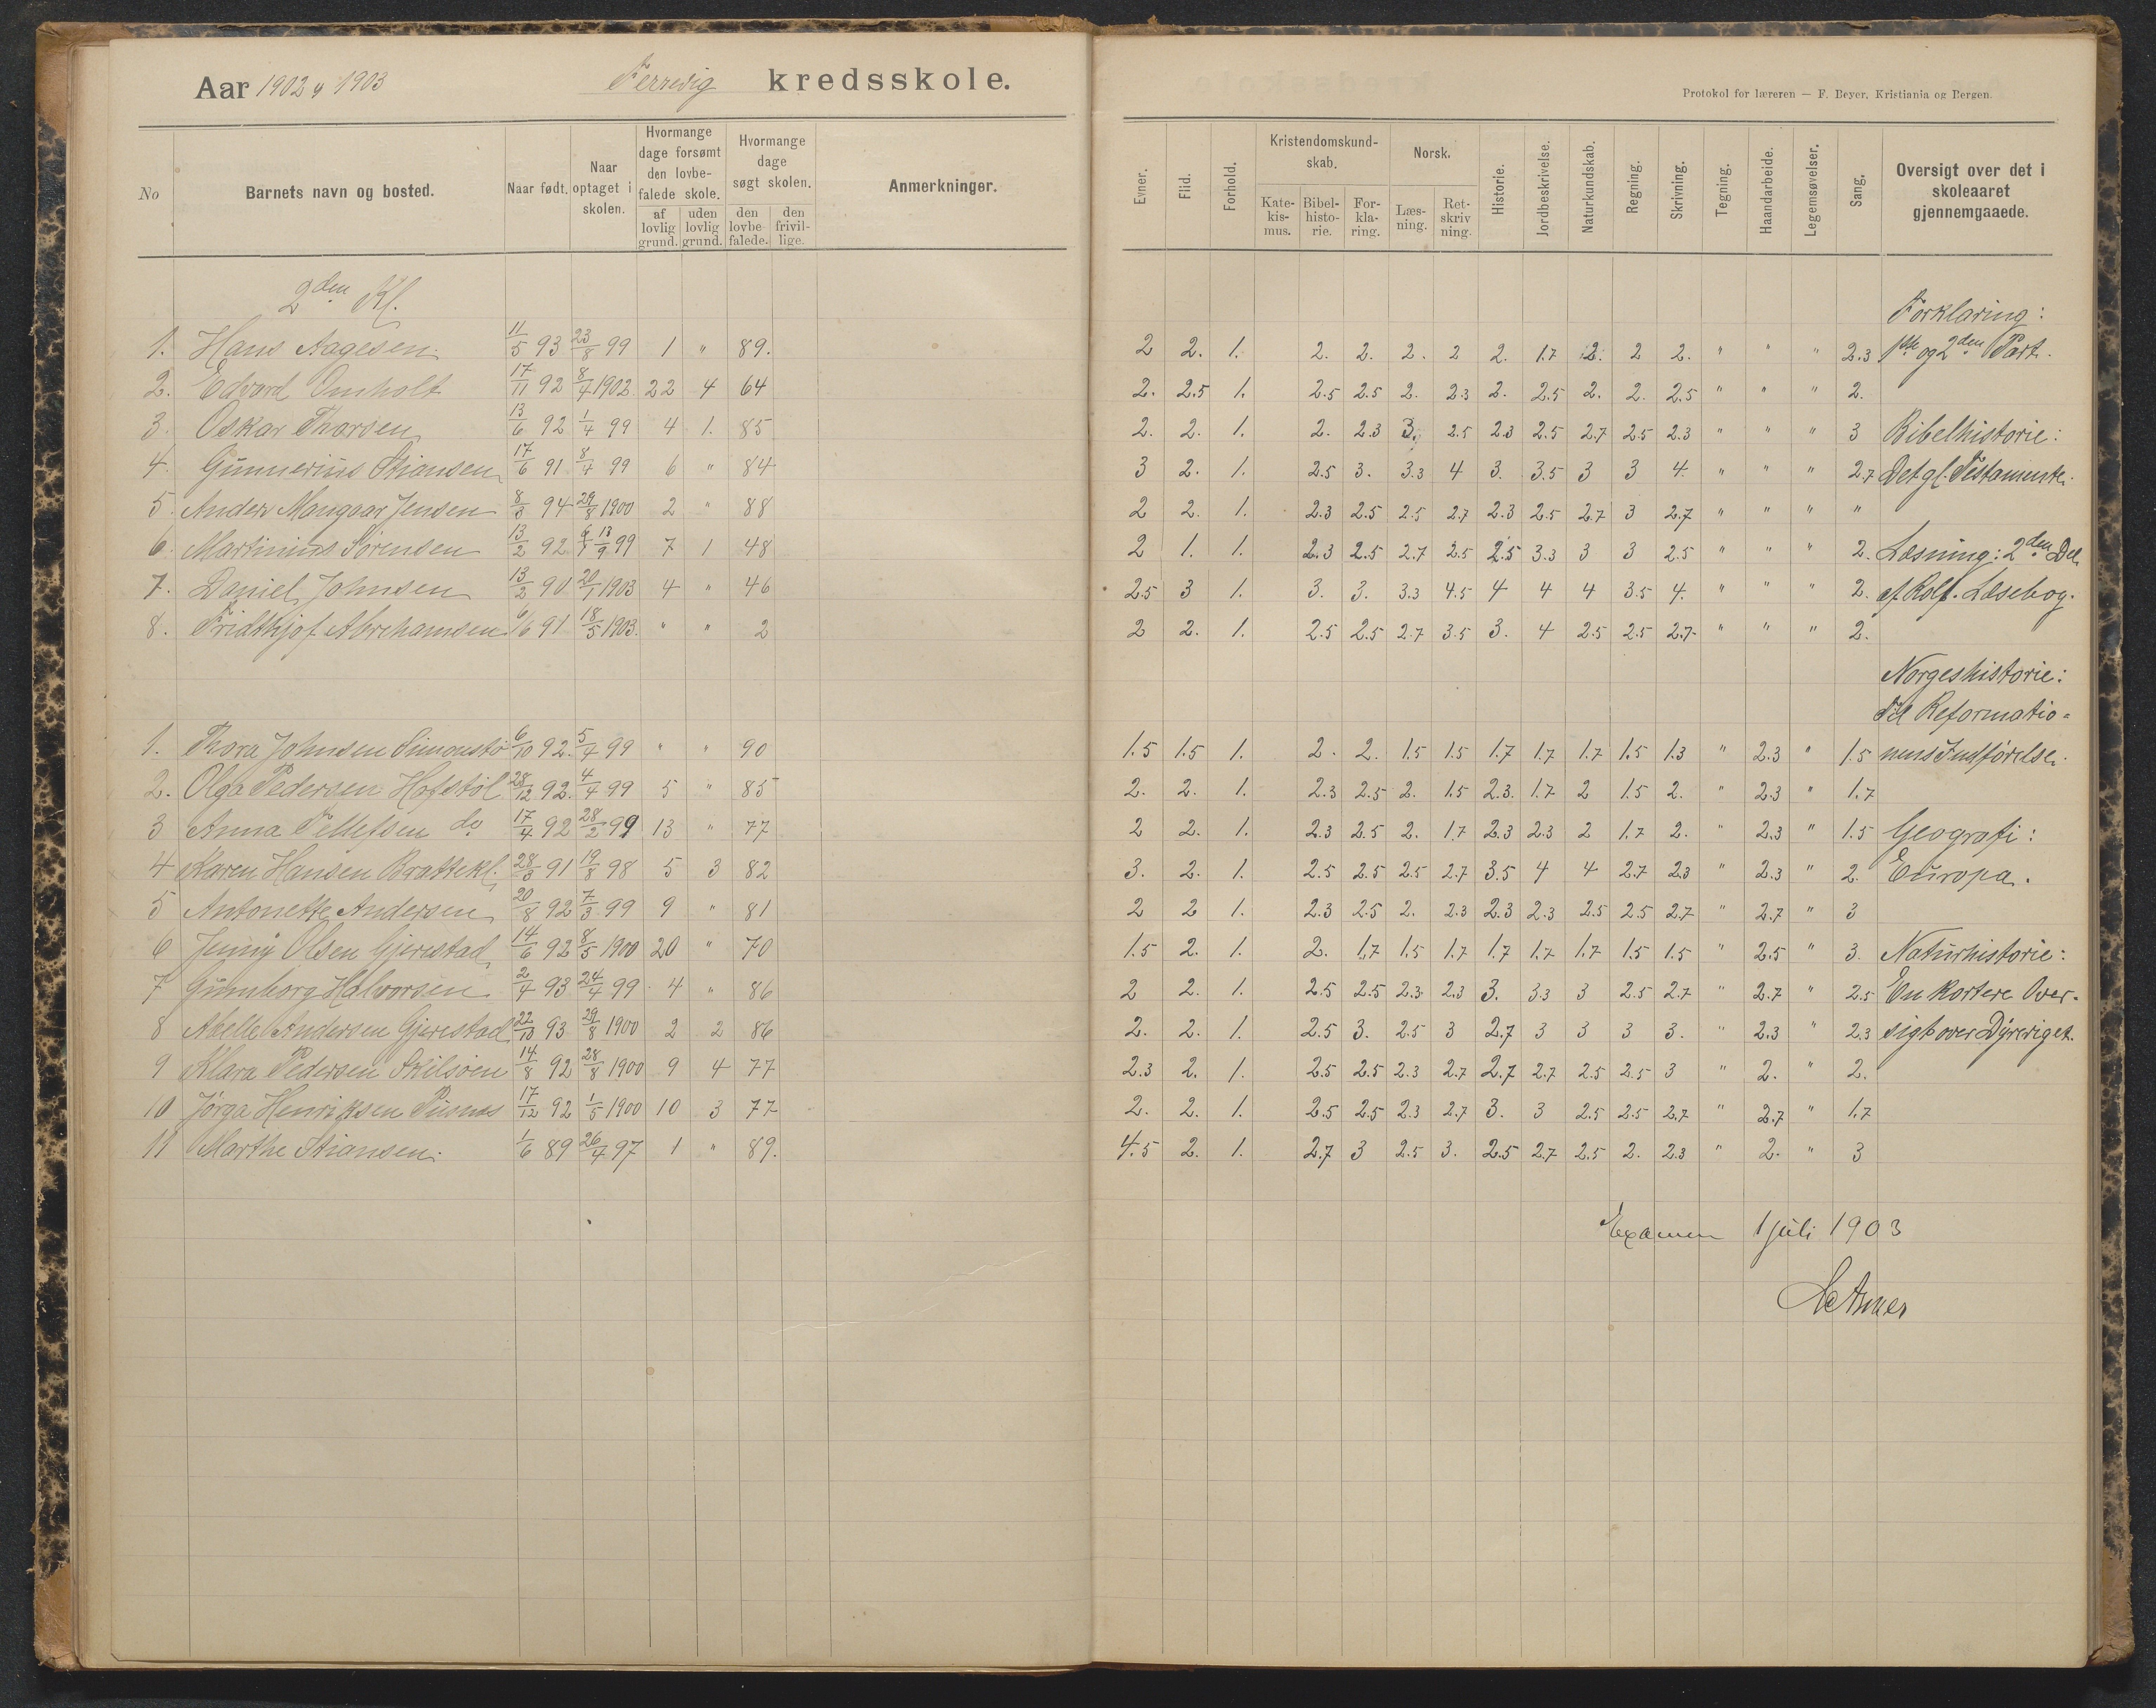 Aar 1902 og 1903 Ferrevig kredsskole.
No Barnets navn og bosted. Naar født. Naar optaget i skolen. Hvormange dage forsømt den lovbefalede skole. af lovlig grund. uden lovlig grund. Hvormange dage søgt skolen. den lovbefalede. den frivillige. Anmerkninger.
2den Kl.
1. Hans Aagesen. 11/5 93 23/8 99 1 " 89.
2. Edvard Omholt 17/11 92 8/4 1902 22 4 64
3. Oskar Thorsen 13/6 92 1/4 99 4 1. 85
4. Gunnerius Stiansen 17/6 91 8/4 99 6 " 84
5. Anders Mangvar Jensen 8/3 94 29/8 1900 2 " 88
6. Martinius Sørensen 13/2 92 13/9 99 7 1 48
7. Daniel Johnsen 13/3 90 20/1 1903 4 " 46
8. Fridthjof Abrehamsen 6/6 91 18/5 1903. " " 2
1. Thora Johnsen Simonstø 6/10 92. 5/4 99 " " 90
2. Olga Pedersen Hofstøl 28/12 92. 4/4 99 5 " 85
3 Anna Tellefsen do 17/4 92 28/2 99 13 " 77
4 Karen Hansen Brattekl. 28/3 91 19/8 98 5 3 82
5 Antonette Andersen 20/8 92 7/3 99 9 " 81
6 Jenny Olsen Gjerestad 14/6 92 8/5 1900 20 " 70
7 Gunnborg Halvorsen 2/4 93 24/4 99 4 " 86
8 Abelle Andersen Gjerestad 22/10 93 29/8 1900 2 2 86
9 Klara Pedersen Skilsøen 14/8 92 28/8 1900 9 4 77
10 Jørga Henriksen 17/12 92 1/5 1900 10 3 77
11 Marthe Stiansen. 1/6 89 26/4 97 1 " 89.
Protokol for læreren — F. Beyer, Kristiania og Bergen.
Evner. Flid. Forhold. Kristendomskundskab. Katekismus. Bibelhistorie. Forklaring. Norsk. Læsning. Retskrivning. Historie. Jordbeskrivelse. Naturkundskab. Regning. Skrivning. Tegning. Haandarbeide. Legemsøvelser. Sang. Oversigt over det i skoleaaret gjennemgaaede.
Forklaring:
2 2. 1. 2. 2. 2. 2 2. 1.7 2. 2 2. " " " 2.3 1ste og 2den Part.
2. 2.5 1. 2.5 2.5 2. 2.3 2. 2.5 2. 2. 2.5 " " " 2.
2. 2. 1. 2. 2.3 3. 2.5 2.3 2.5 2.7 2.5 2.3 " " " 3 Bibelhistorie:
3 2. 1. 2.5 3. 3.3 4 3. 3.5 3 3 4. " " " 2.7 Det gl. Testamente.
2 2. 1. 2.3 2.5 2.5 2.7 2.3 2.5 2.7 3 2.7 " " " "
2 1. 1. 2.3 2.5 2.7 2.5 2.5 3.3 3 3 2.5 " " " 2. Læsning: 2den Del
2.5 3 1. 3. 3. 3.3 4.5 4 4 4 3.5 4. " " " 2. af Rolf. Læsebog.
2 2. 1. 2.5 2.5 2.7 3.5 3. 4 2.5 2.5 2.7 " " " 2.
Norgeshistorie:
til Reformatio=
1.5 1.5 1. 2. 2. 1.5 1.5 1.7 1.7 1.7 1.5 1.3 " 2.3 " 1.5 nens Indførelse.
2. 2. 1. 2.3 2.5 2. 1.5 2.3. 1.7 2 1.5 2. " 2.3 " 1.7
2 2. 1. 2.3 2.5 2. 1.7 2.3 2.3 2 1.7 2. " 2.3 " 1.5 Geografi:
3. 2. 1. 2.5 2.5 2.5 2.7 3.5 4 4 2.7 2.3 " 2.3 " 2. Europa.
2 2 1. 2.3 2.5 2. 2.3 2.3 2.3 2.5 2.5 2.7 " 2.7 " 3
1.5 2. 1. 2. 1.7 1.5 1.7 1.7 1.7 1.7 1.5 1.5 " 2.5 " 3. Naturhistorie:
2 2. 1. 2.5 2.5 2.3 2.3 3. 3.3 3 2.5 2.7 " 2.7 " 2.5 En kortere Over-
2. 2. 1. 2.5 3. 2.5 3 2.7 3 3 3 3. " 2.3 " 2.3 sigt over Dyreriget.
2.3 2. 1. 2.5 2.5 2.3 2.7 2.7 2.7 2.5 2.5 3 " 2. " 2.
2. 2. 1. 2.5 2.5 2.3 2.7 3. 3 2.5 2.5 2.7 " 2.7 " 1.7
4.5 2. 1. 2.7 3 2.5 3. 2.5 2.7 2.5 2. 2.3 " 2. " 3
Examen 1 juli 1903